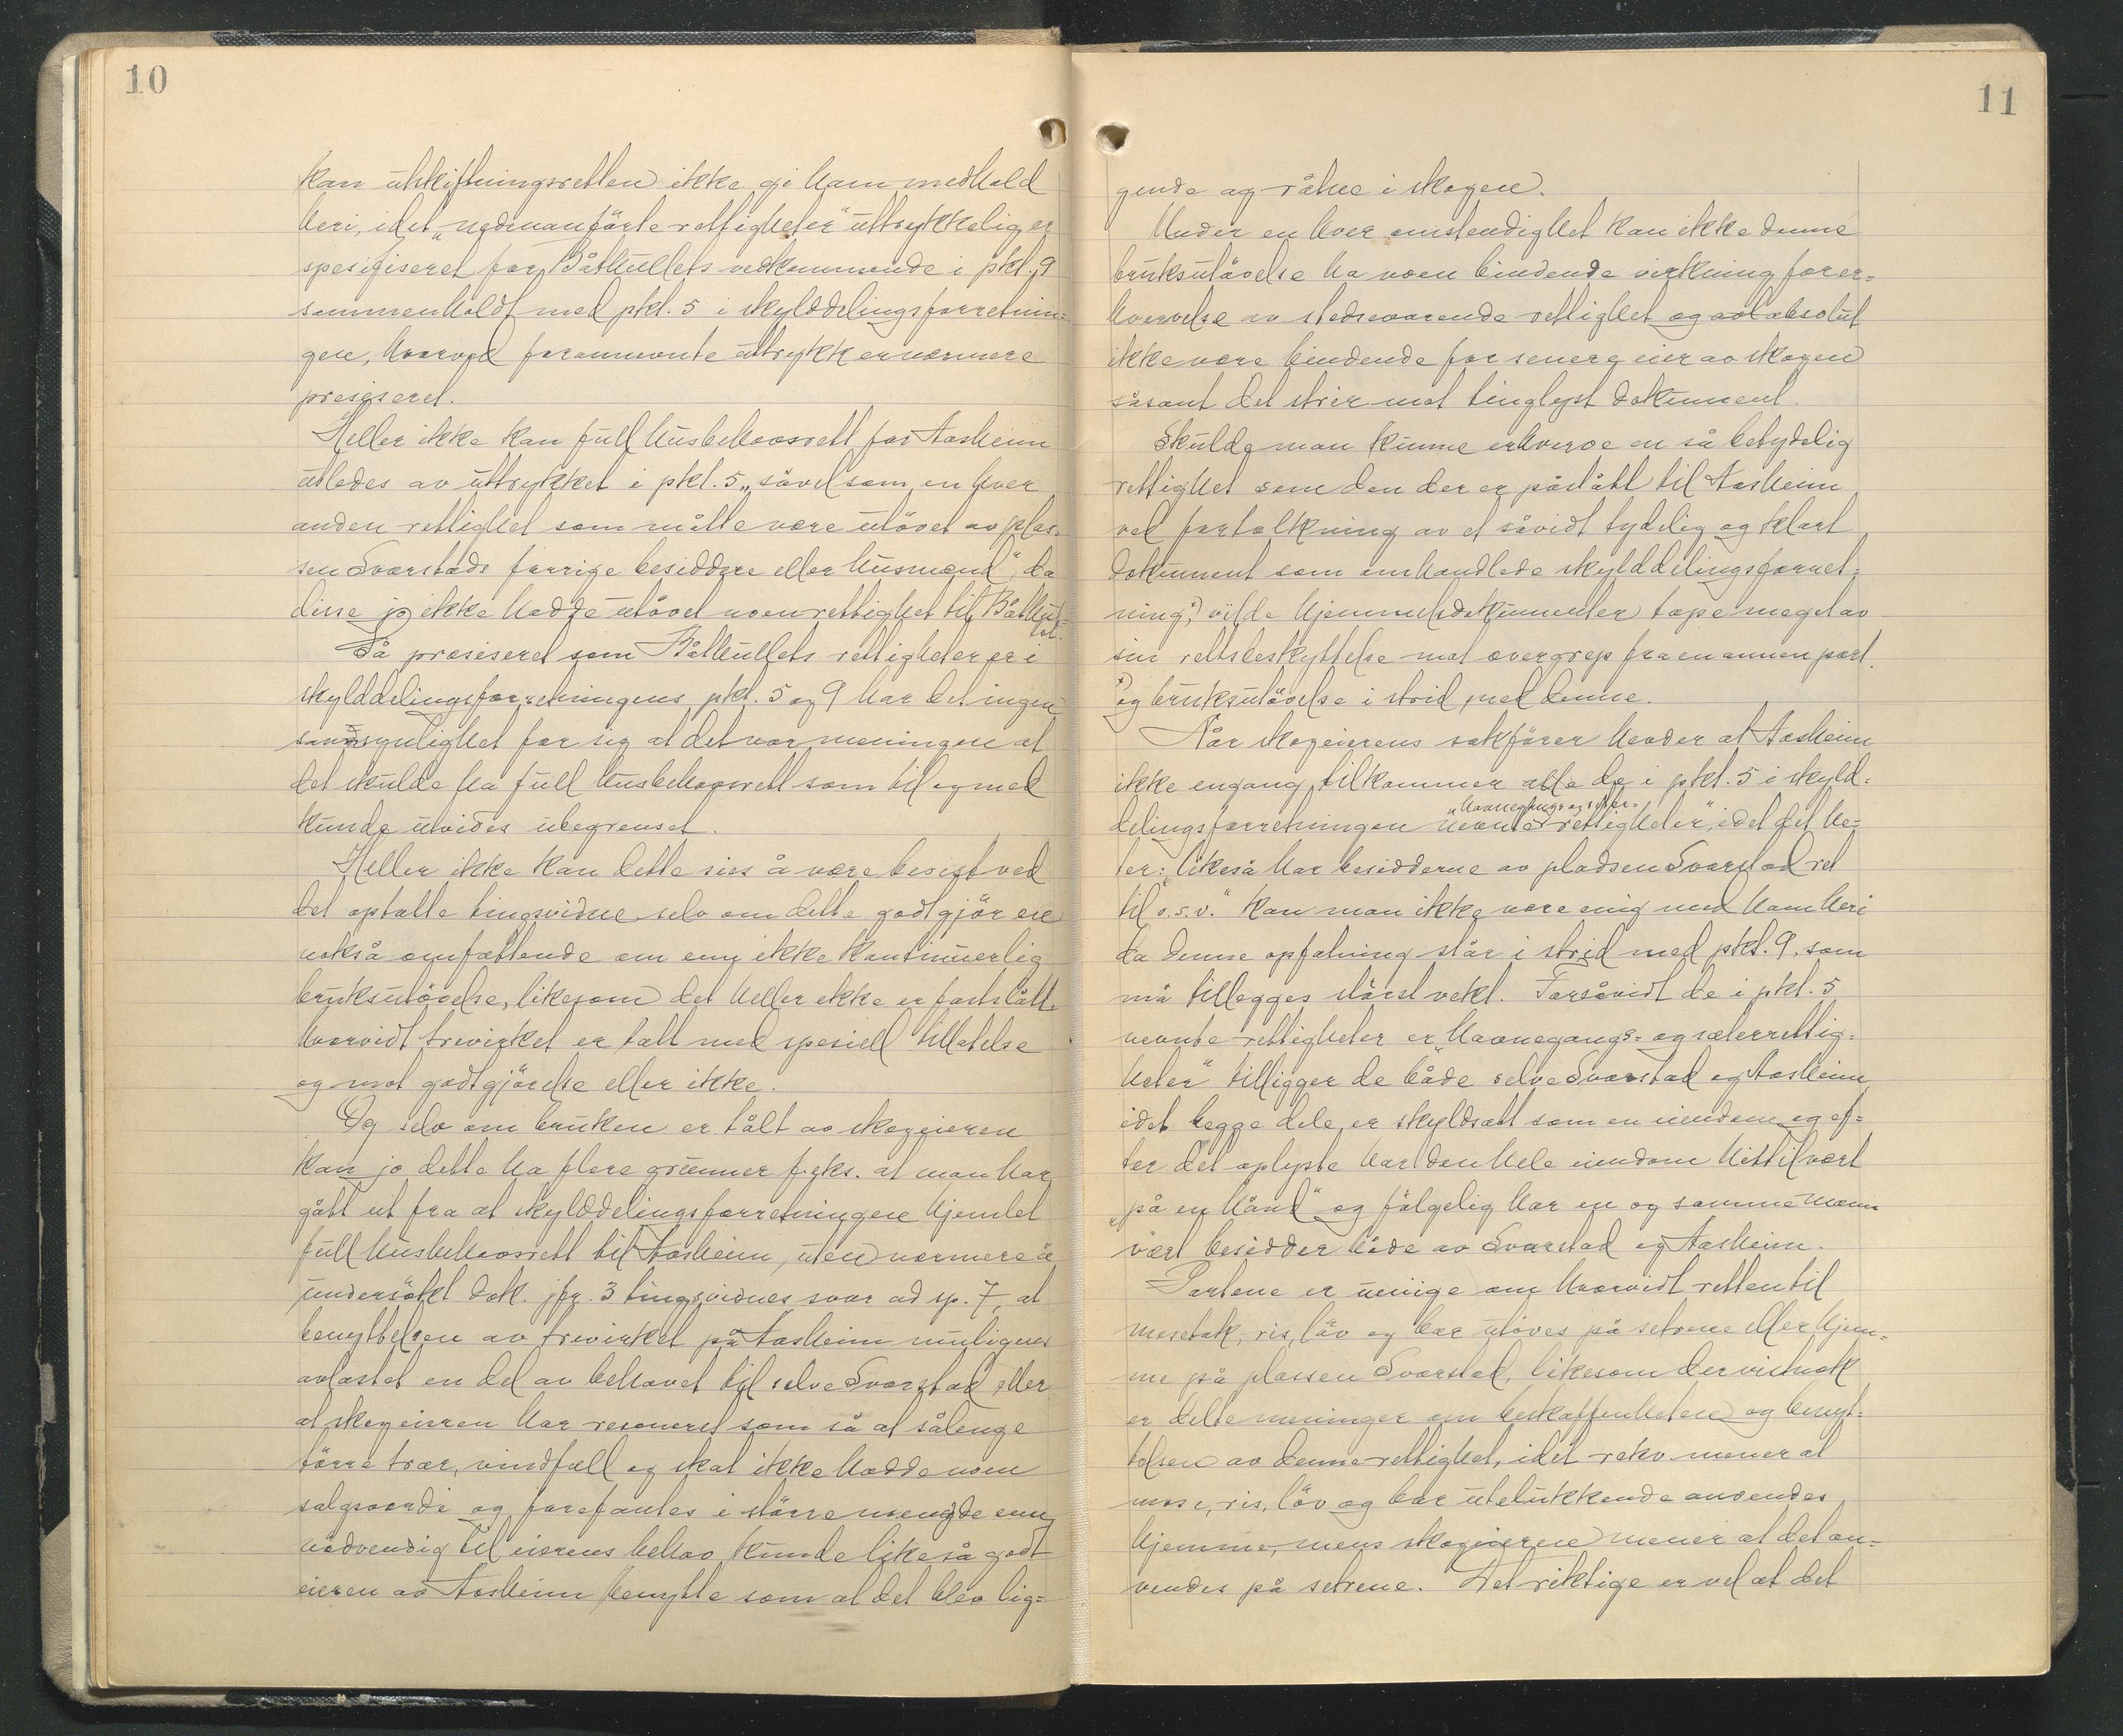 10
kan utskiftningsretten ikke gi ham medhold
heri, idet „nedenanförte rettigheter" uttrykkelig er
spesifiseret for Båthullets vedkommende i pkt. 9
sammenholdt med pkt. 5 i skylddelingsforretnin=
gen, hvorved forannevnte uttrykk er nærmere
presiseret.
Heller ikke kan full husbehovsrett for Aasheim
utledes av uttrykket i pkt. 5 „såvel som en hver
anden rettighet som måtte være utövet av plas=
sen Svarstads forrige besiddere eller husmænd", da
disse jo ikke hadde utövet noen rettighet til Båthul=
let.
Så præsiseret som Båthullets rettigheter er i
skylddelingsforretningens pkt. 5 og 9 har det ingen
sandsynlighet for sig at det var meningen at
det skulde ha full husbehovsrett som til og med
kunde utvides ubegrenset.
Heller ikke kan dette sies å være bevist ved
det optatte tingsvidne, selv om dette godtgjör en
nokså omfattende om enn ikke kontinuerlig
bruksutövelse, likesom det heller ikke er fastslått
hvorvidt trevirket er tatt med spesiell tillatelse
og mot godtgjörelse eller ikke.
Og selv om bruken er tålt av skogeieren
kan jo dette ha flere grunner f. eks. at man har
gått ut fra at skylddelingsforretningen hjemlet
full husbehovsrett til Aasheim, uten nærmere å
undersökt dok. jfr. 3 tingsvidnes svar ad sp. 7, at
benyttelsen av trevirket på Aasheim muligens
avlastet en del av behovet til selve Svarstad eller
at skogeieren har resoneret som så at sålenge
törre trær, vindfall og skat ikke hadde noen
salgsverdi og forefantes i större mengde enn
nödvendig til eierens behov kunde likeså godt
eieren av Aasheim benytte som at det blev lig=
11
gende og råtne i skogen.
Under en hver omstendighet kan ikke denne
bruksutövelse ha noen bindende virkning for er=
hvervelse av stedsevarende rettighet og vel absolut
ikke være bindende for senere eier av skogen
såsant det strir mot tinglyst dokument.
Skulde man kunne erhverve en så betydelig
rettighet som den der er påstått til Aasheim
ved fortolkning av et såvidt tydelig og klart
dokument som omhandlede skylddelingsforret=
ning,ˣ⁾ vilde hjemmelsdokumenter tape meget av
sin rettsbeskyttelse mot overgrep fra en annen part.
ˣ⁾ og bruksutövelse i strid med denne.
Når skogeierens sakförer hevder at Aasheim
ikke engang tilkommer alle de i pkt. 5 i skyld=
delingsforretningen nevnte „havnegangs- og seter-
rettigheter", idet det he=
ter: „likeså har besidderne av pladsen Svarstad ret
til o.s.v." kan man ikke være enig med ham heri
da denne opfatning står i strid med pkt. 9, som
må tillegges störst vekt. Forsåvidt de i pkt. 5
nevnte rettigheter er „havnegangs- og sæterrettig=
heter" tilligger de både selve Svarstad og Aasheim,
idet begge dele er skyldsatt som en eiendom og ef=
ter det oplyste har den hele eiendom hittil vært
„på en hånd" og fölgelig har en og samme mann
vært besidder både av Svarstad og Aasheim.
Partene er uenige om hvorvidt retten til
mosetak, ris, löv og bar utöves på setrene eller hjem=
me på plassen Svarstad, likesom der vistnok
er delte meninger om beskaffenheten og benyt=
telsen av denne rettighet, idet rekv. mener at
mose, ris, löv og bar utelukkende anvendes
hjemme, mens skogeieren mener at det an=
vendes på setrene. Det riktige er vel at det